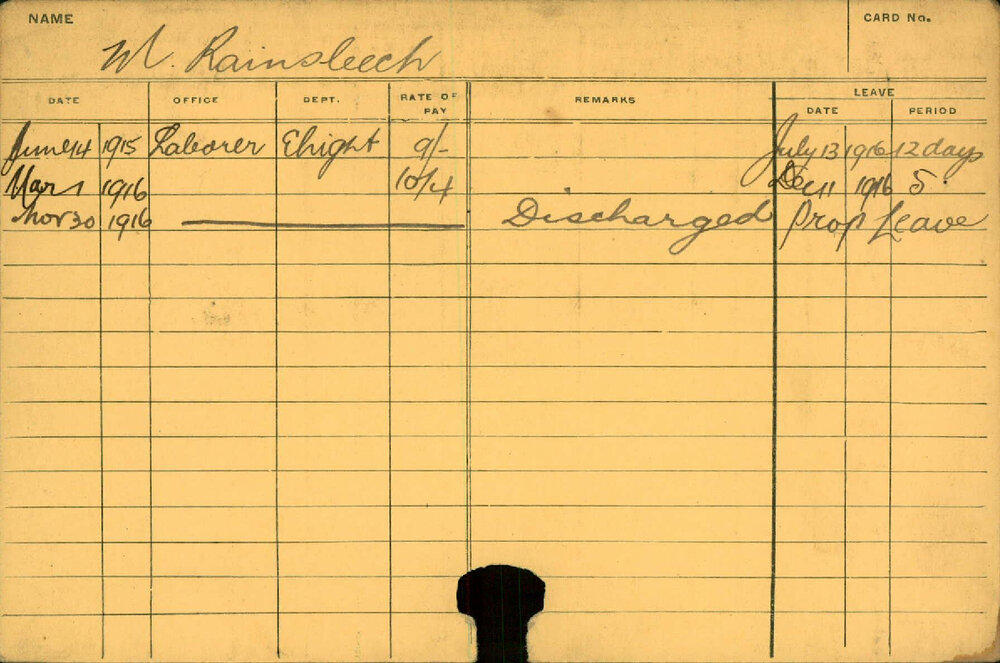 NAME
CARD No.
M. Rainsleech
DATE OFFICE DEPT. RATE OF PAY REMARKS LEAVE DATE PERIOD
June 14 1915 Laborer Elright 9/- July 13 1916 12 days
Mar 1 1916 10/4 Dec 11 1916 5
Nov 30 1916 Discharged Prop Leave